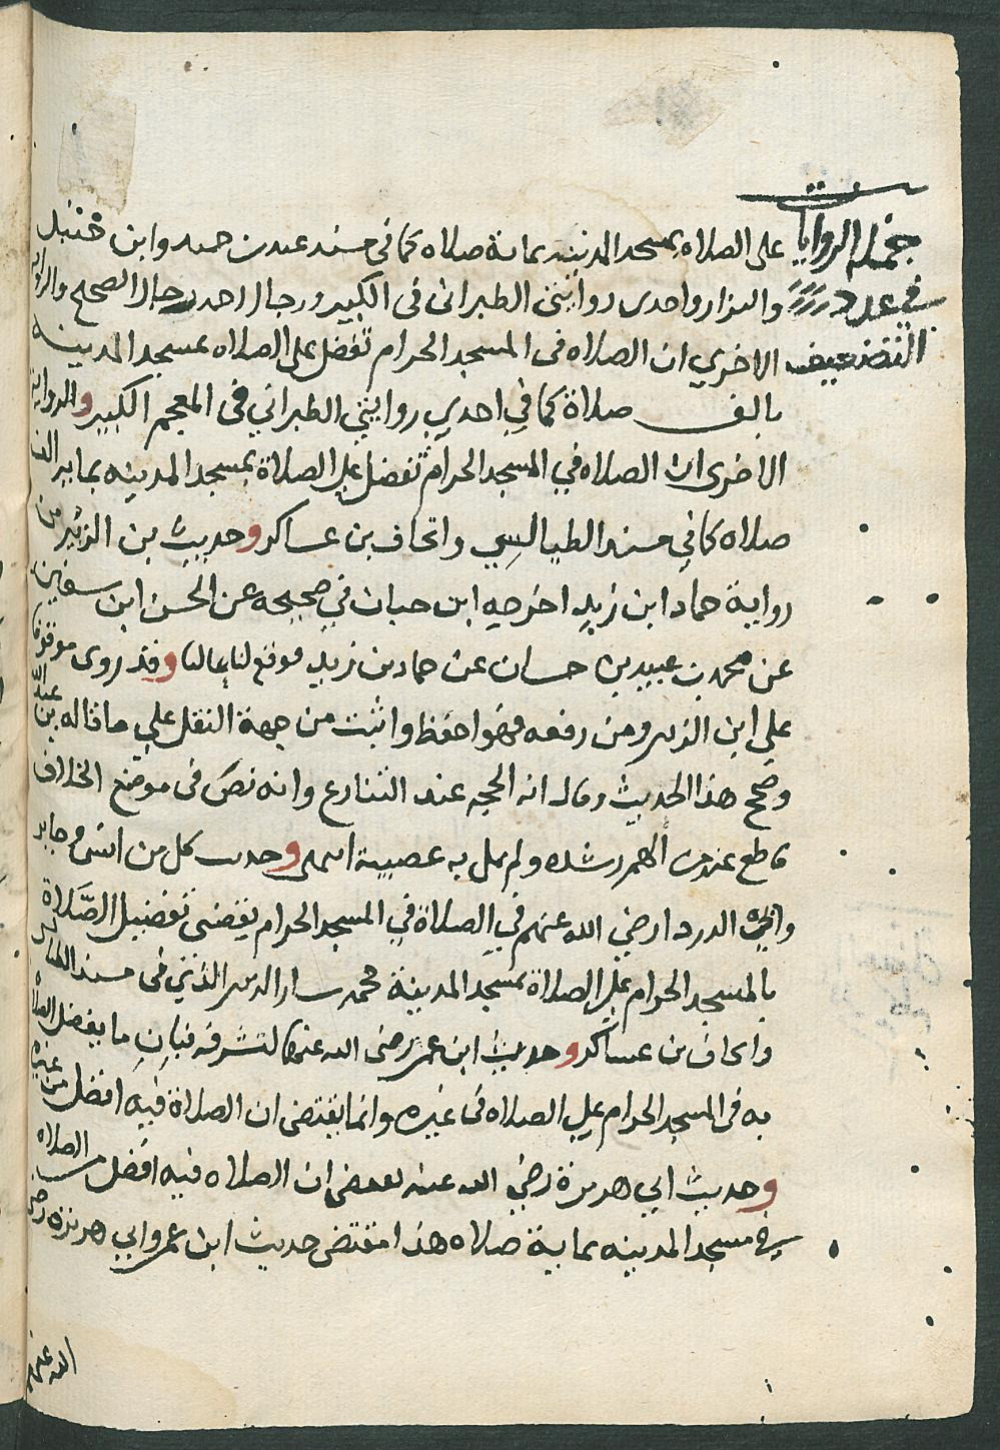 مجمل الروايات
في عدد
التضعيف
على الصلاه بمسجد المدينه بماية صلاه كما فى مسند عبد بن حميد وابن حنبل
والبزار واحدى روايتى الطبرانى فى الكبير ورجال احمد رجال الصحيح والروايه
الاخري ان الصلاه فى المسجد الحرام تفضل على الصلاه بمسجد المدينه
بالف صلاة كما في احدي روايتي الطبراني فى المعجم الكبير والرواية
الاخرى ان الصلاه في المسجد الحرام تفضل على الصلاة بمسجد المدينه بماية الف
صلاه كما في مسند الطيالسي واتحاف بن عساكر وحديث بن الزبير من
رواية حماد ابن زيد اخرجه ابن حبان في صحيحه عن الحسن ابن سفين
عن محمد بن عبيد بن حسان عن حماد بن زيد فوقع لنا عاليا وقد روى موقوفا
علي ابن الزبير ومن رفعه فهو احفظ واثبت من جهة النقل علي ما قاله بن عبد البر
وصحح هذا الحديث وقال انه الحجه عند التنازع وانه نص فى موضع الخلاف
قاطع عند من الهم رشده ولم يمل به عصبية انتهى وحديث كل من انس وجابر
وابي الدرداء رضي الله عنهم في الصلاة في المسجد الحرام يقتضى تفضيل الصَّلاة
بالمسجد الحرام علي الصلاة بمسجد المدينة الذي فى مسند
واتحاف بن عساكر وحديث ابن عمر رضى الله عنهما ما يفضل الصلاة
به فى المسجد الحرام علي الصلاه فى غيره وانما يقتضى ان الصلاة فيه افضل من غيره
وحديث ابي هريرة رضي الله عنه يقتضى ان الصلاه فيه افضل من الصلاه
في مسجد المدينه بماية صلاه هذا مقتضى حديث ابن عمر وابي هريره رضى
الله عنهم